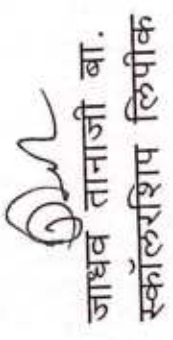 जाधव तानाजी बा.
स्कॉलरशिप लिपीक